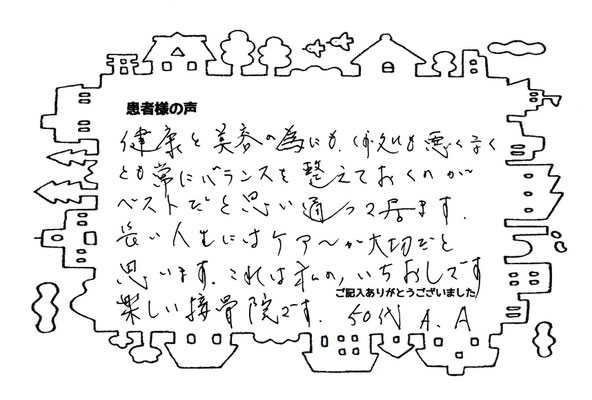 患者様の声
健康と美容の為にも、何処も悪くなく
とも常にバランスを整えておくのが
ベストだと思い通って居ます.
長い人生にはケアーが大切だと
思います.これは私の,いちおしです
ご記入ありがとうございました
楽しい接骨院です. 50代 A.A